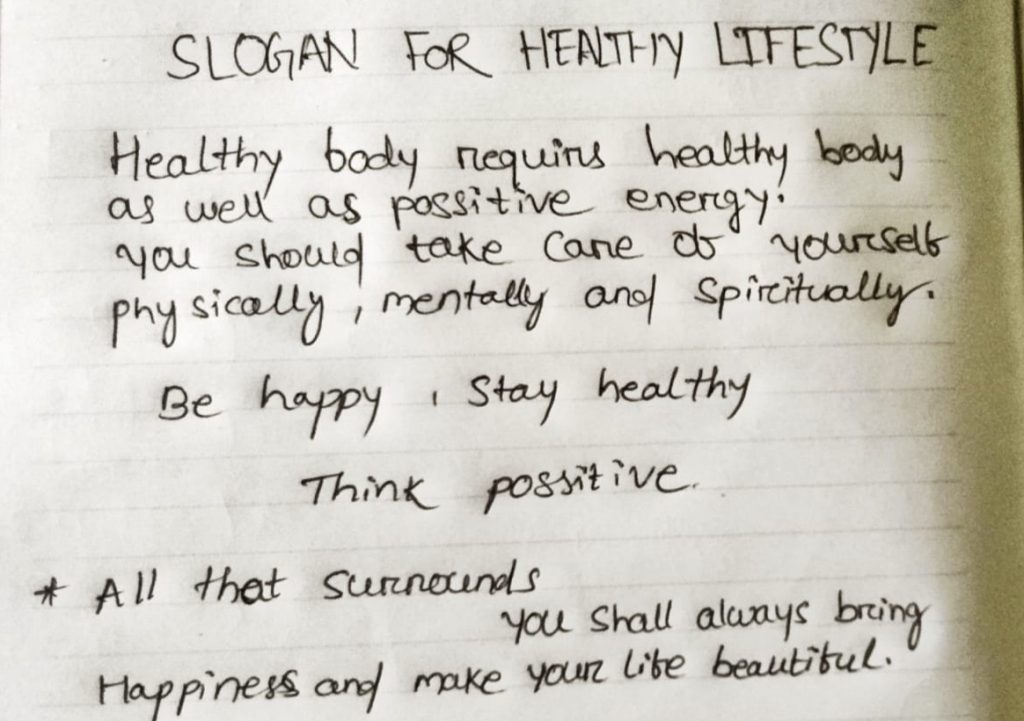 SLOGAN FOR HEALTHY LIFESTYLE
Healthy body requirs healthy body
as well as possitive energy.
you should take care of yourself
physically, mentally and spiritually.
Be happy, Stay healthy
Think possitive.
* All that surrounds
you shall always bring
Happiness and make your life beautiful.